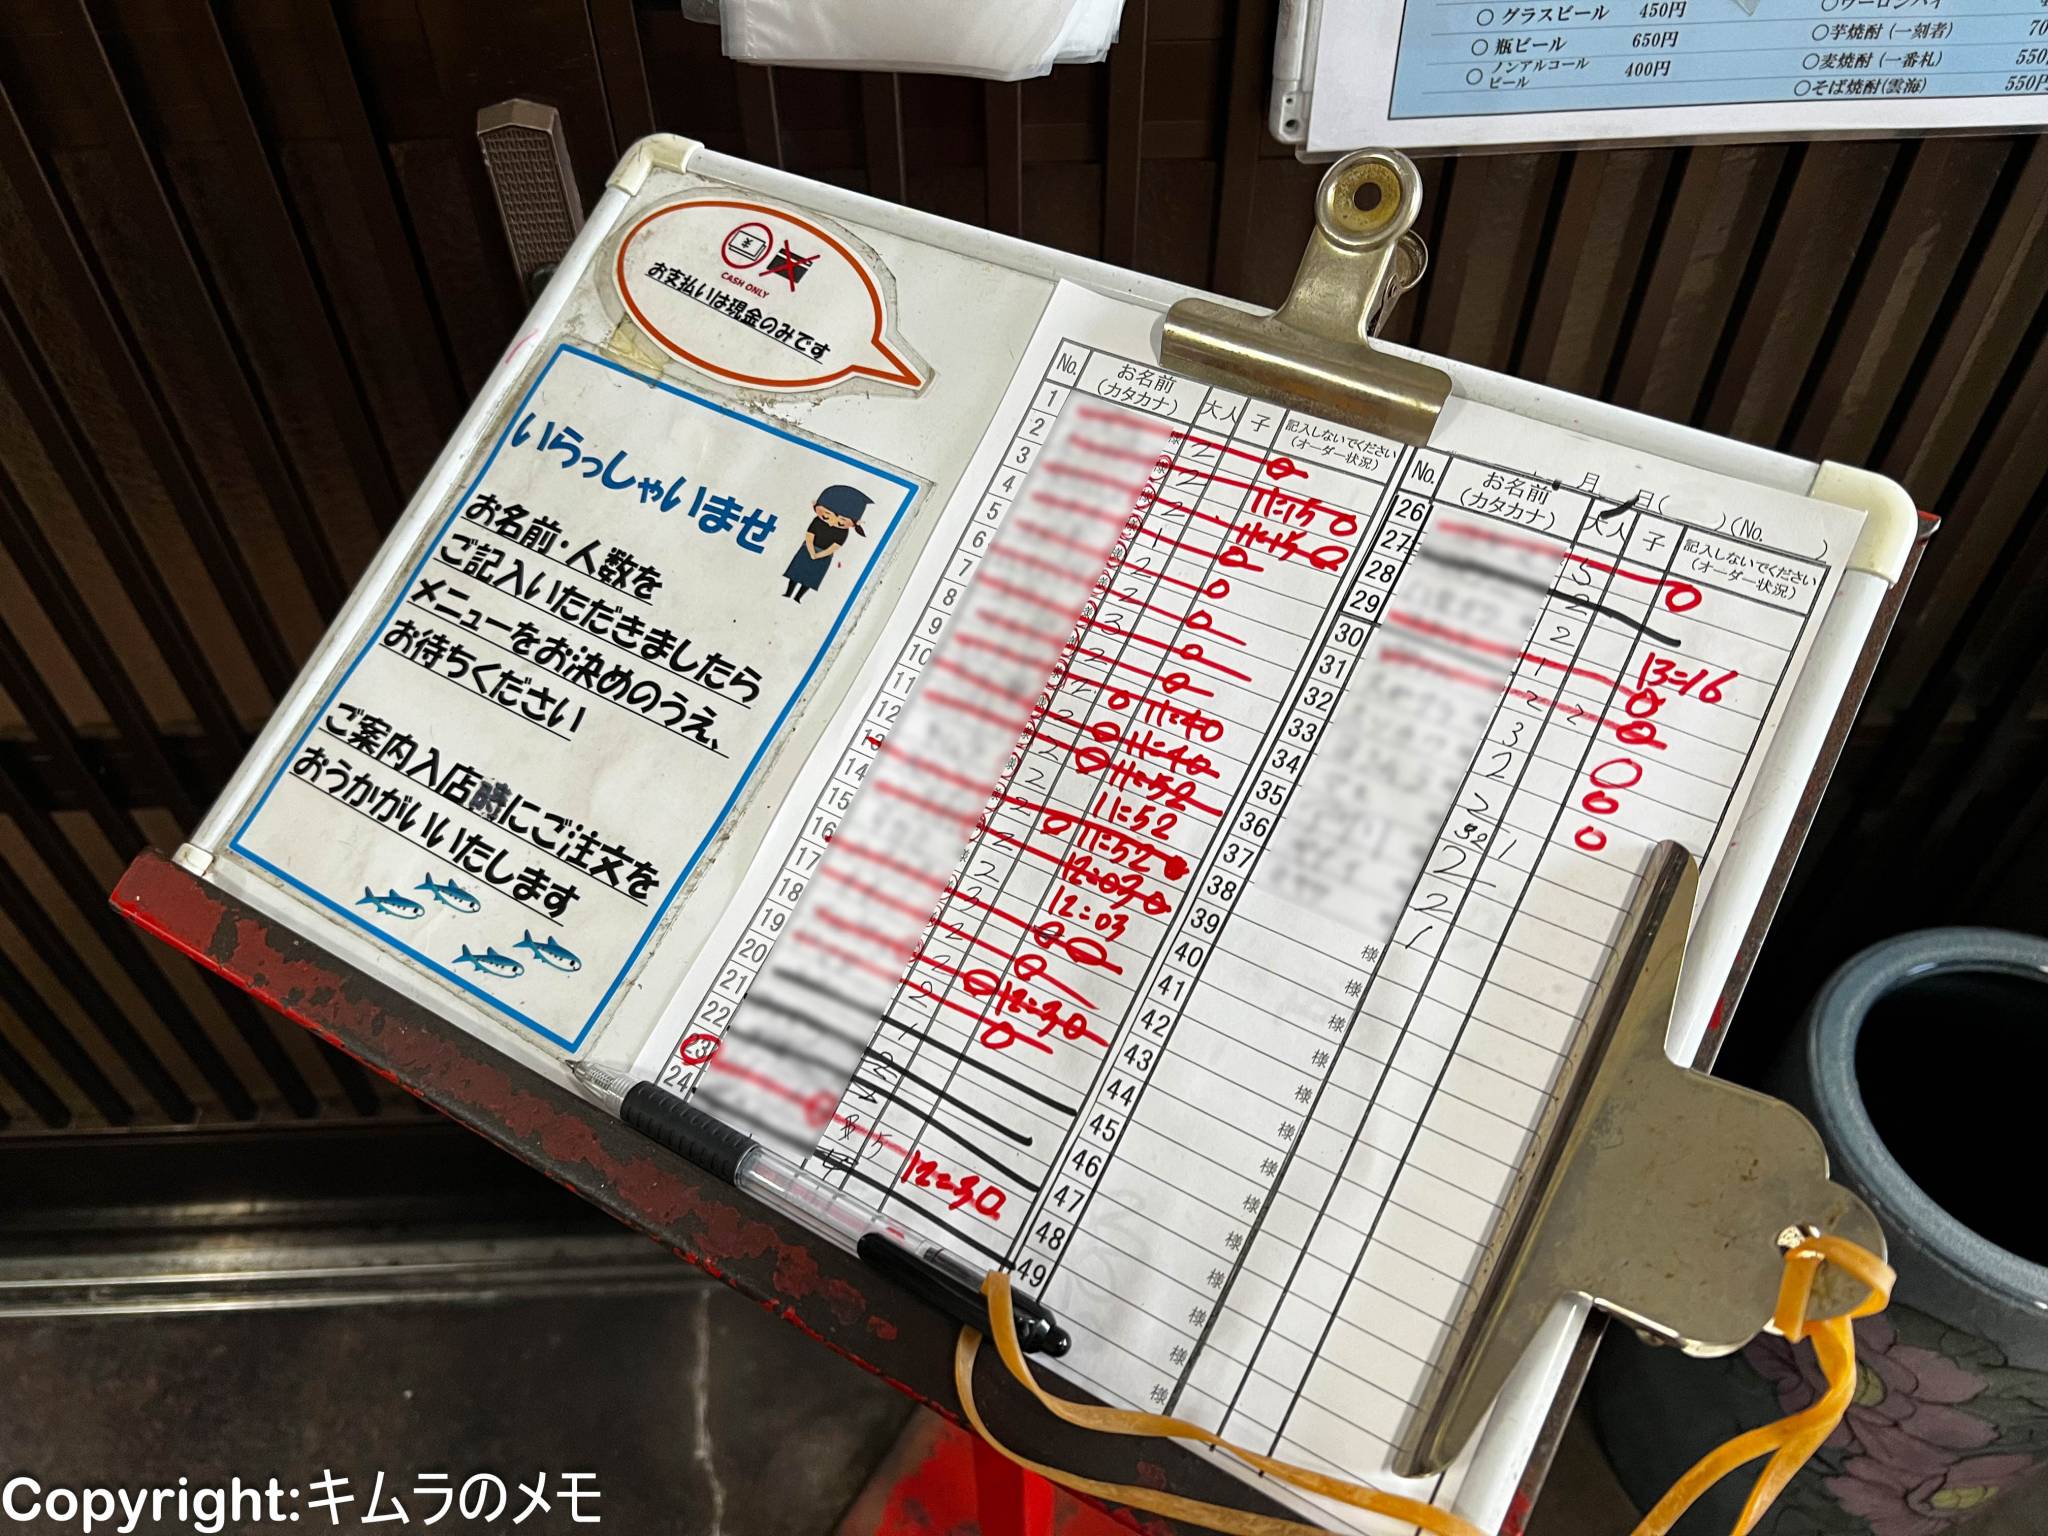 ○ グラスビール 450円
○ 瓶ビール 650円
○ ノンアルコール
ビール 400円
○芋焼酎 (一刻者)
○麦焼酎 (一番札) 550
○そば焼酎(雲海) 550円
CASH ONLY
お支払いは現金のみです
いらっしゃいませ
お名前・人数を
ご記入いただきましたら
メニューをお決めのうえ、
お待ちください
ご案内入店時にご注文を
おうかがいいたします
No. お名前 大人 子 記入しないでください
(カタカナ) (オーダー状況)
1
2 2
3 2 11:15
4 2 11:15
5 1
6 2
7 2
8 3
9 2
10 2 11:40
11 2 11:40
12 2 11:52
13 2 11:52
14 2 11:52
15 2 12:03
16 2 12:03
17 3
18 2
19 2 12:30
20 2
21 1
22 2
23
24 5 12:30
月 日( )(No. )
No. お名前 大人 子 記入しないでください
(カタカナ) (オーダー状況)
26
27 5
28 2
29 2 13:16
30 1
31 2 2
32 3
33 2
34 2
35 1
36 2
37 2
38 1
39 様
40 様
41 様
42 様
43 様
44 様
45 様
46 様
47 様
48 様
49 様
様
様
Copyright:キムラのメモ